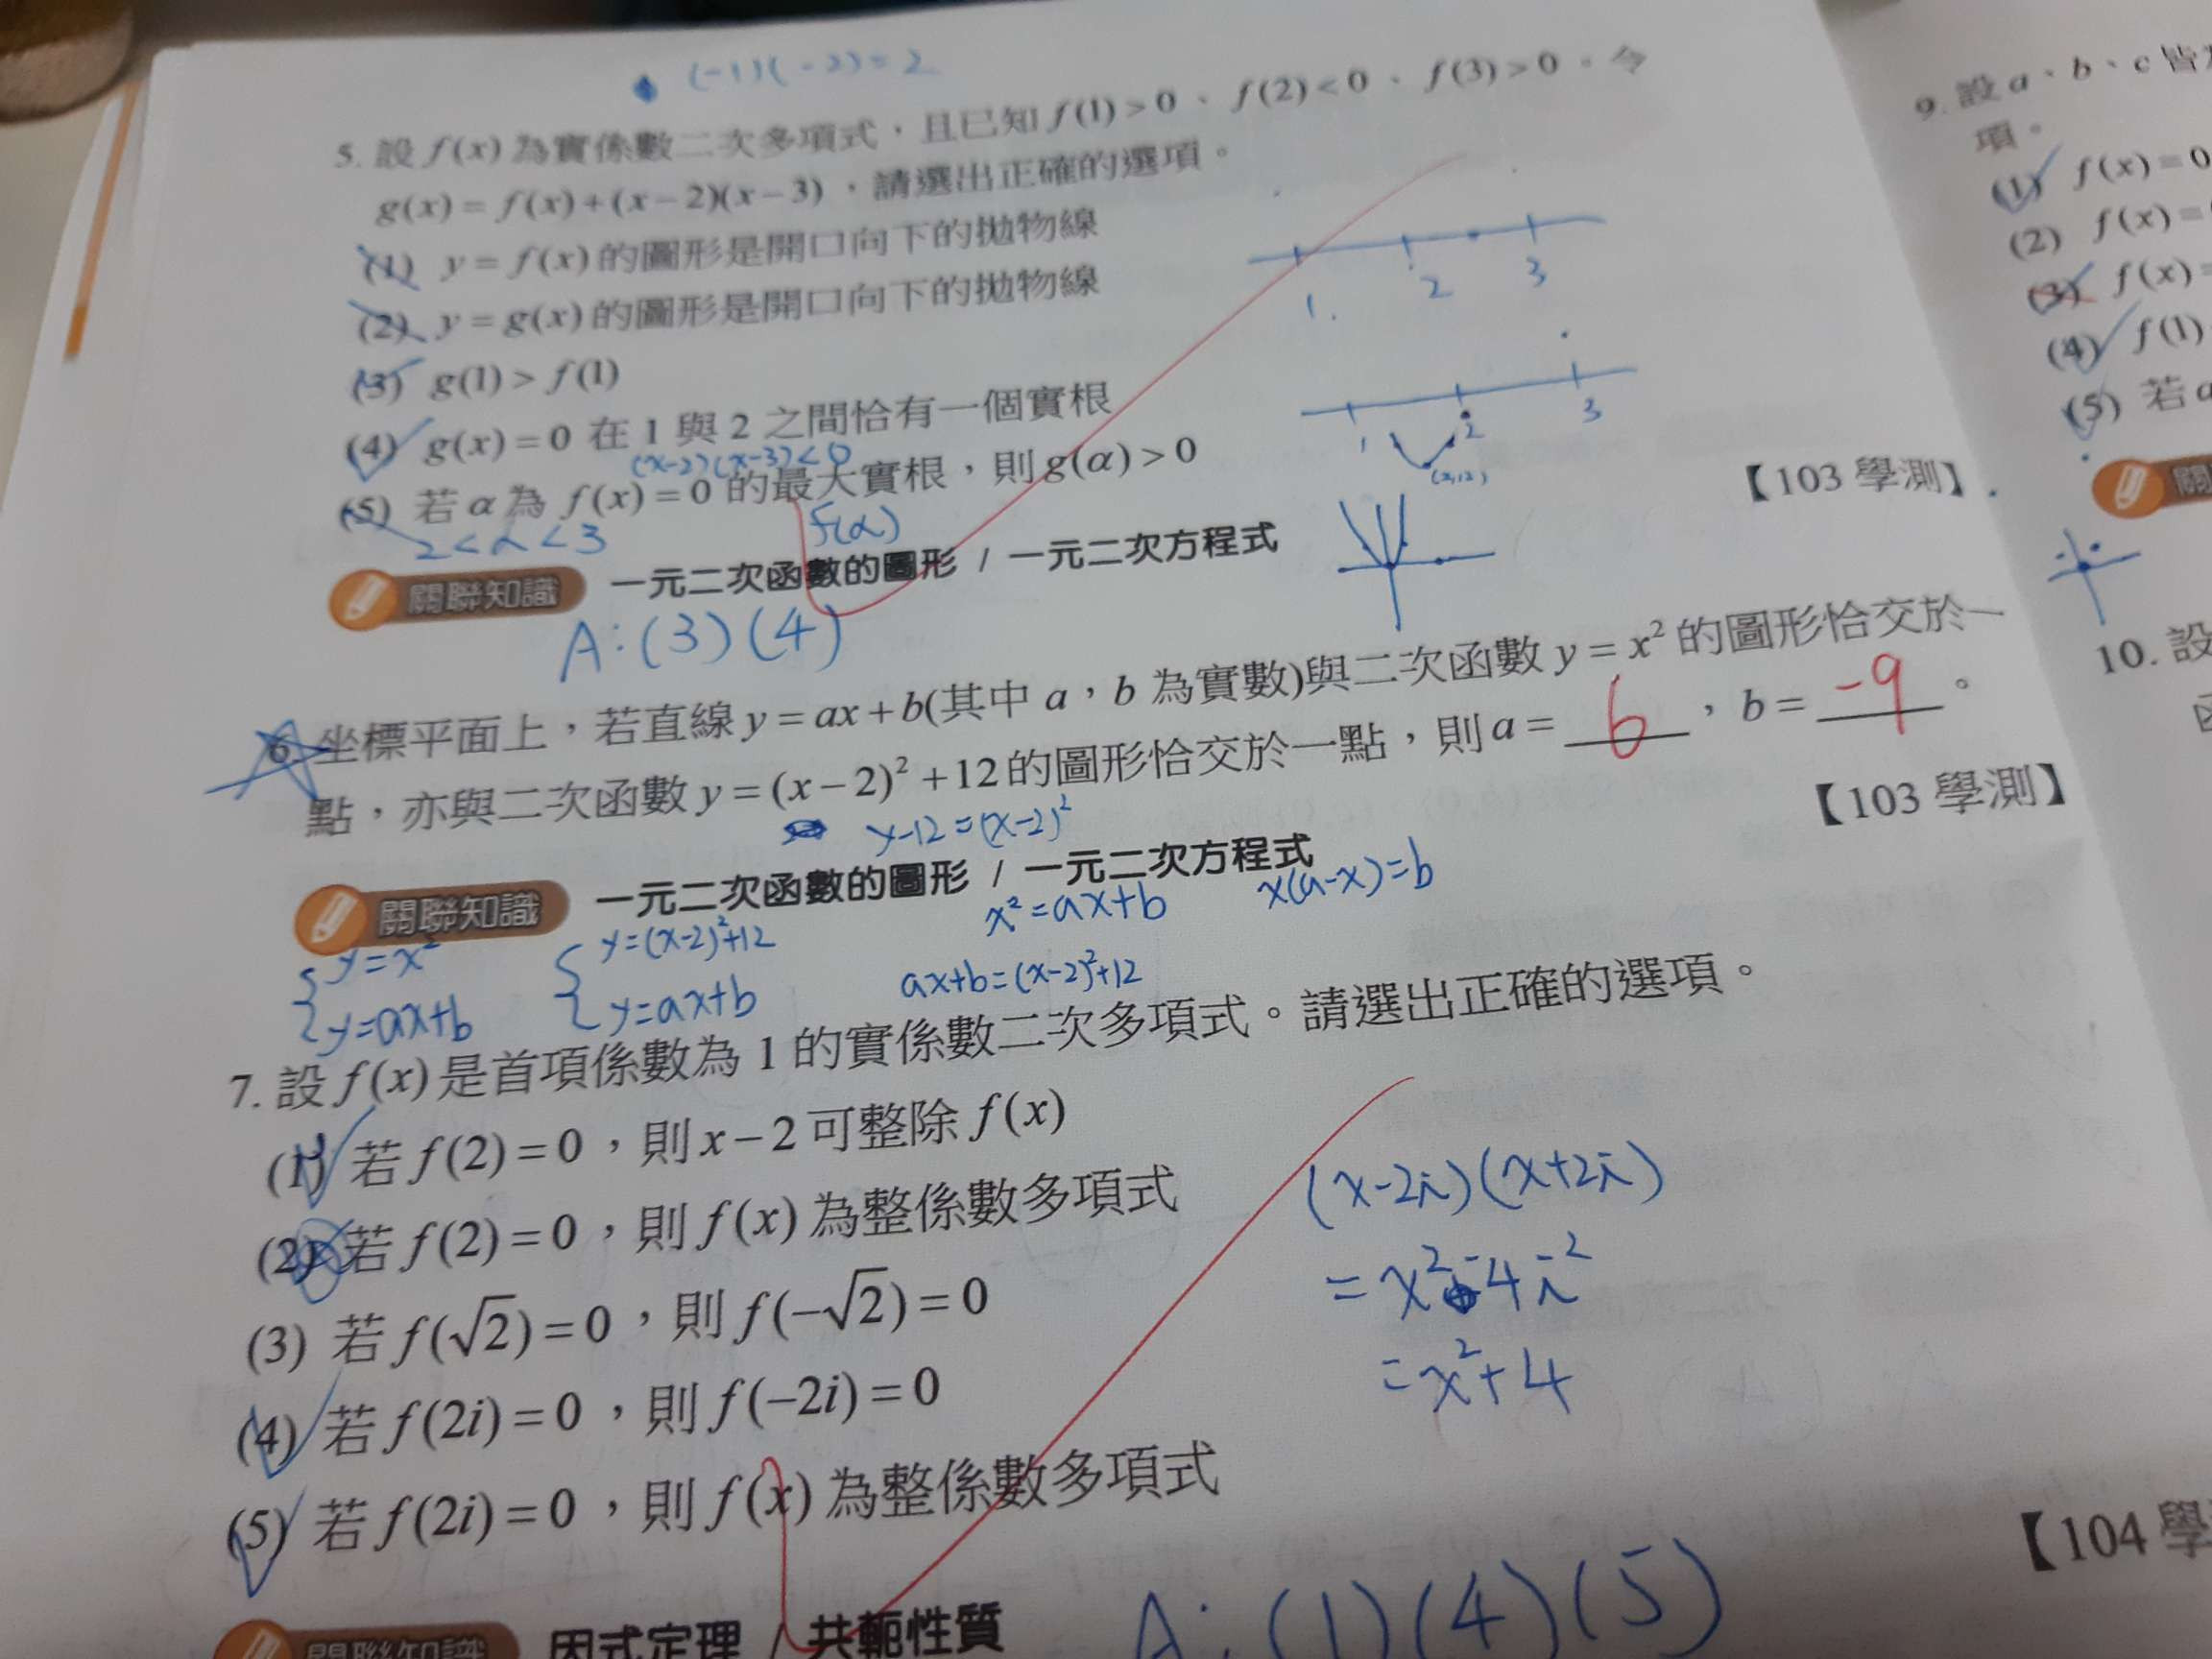 (-1)(-2)=2
5. 設 f(x) 為實係數二次多項式，且已知 f(1)>0、f(2)<0、f(3)>0。令
g(x)=f(x)+(x-2)(x-3)，請選出正確的選項。
(1) y=f(x) 的圖形是開口向下的拋物線
(2) y=g(x) 的圖形是開口向下的拋物線
1. 2 3
(3) g(1)>f(1)
(4) g(x)=0 在 1 與 2 之間恰有一個實根
1 2 3
(x-2)(x-3)<0
(5) 若 α 為 f(x)=0 的最大實根，則 g(α)>0
(2,12)
【103 學測】
2<α<3 f(α)
關聯知識 一元二次函數的圖形 / 一元二次方程式
A:(3)(4)
6. 坐標平面上，若直線 y=ax+b(其中 a，b 為實數)與二次函數 y=x² 的圖形恰交於一
點，亦與二次函數 y=(x-2)²+12 的圖形恰交於一點，則 a= 6 ，b= -9 。
y-12=(x-2)²
【103 學測】
關聯知識 一元二次函數的圖形 / 一元二次方程式
x²=ax+b x(a-x)=b
y=x² y=(x-2)²+12
y=ax+b y=ax+b ax+b=(x-2)²+12
7. 設 f(x) 是首項係數為 1 的實係數二次多項式。請選出正確的選項。
(1) 若 f(2)=0，則 x-2 可整除 f(x)
(2) 若 f(2)=0，則 f(x) 為整係數多項式
(3) 若 f(√2)=0，則 f(-√2)=0
(4) 若 f(2i)=0，則 f(-2i)=0
(5) 若 f(2i)=0，則 f(x) 為整係數多項式
(x-2i)(x+2i)
=x²-4i²
=x²+4
【104 學
關聯知識 因式定理 / 共軛性質
A:(1)(4)(5)
9. 設 a、b、c 皆
項。
(1) f(x)=0
(2) f(x)=
(3) f(x)=
(4) f(1)
(5) 若 a
關
10. 設